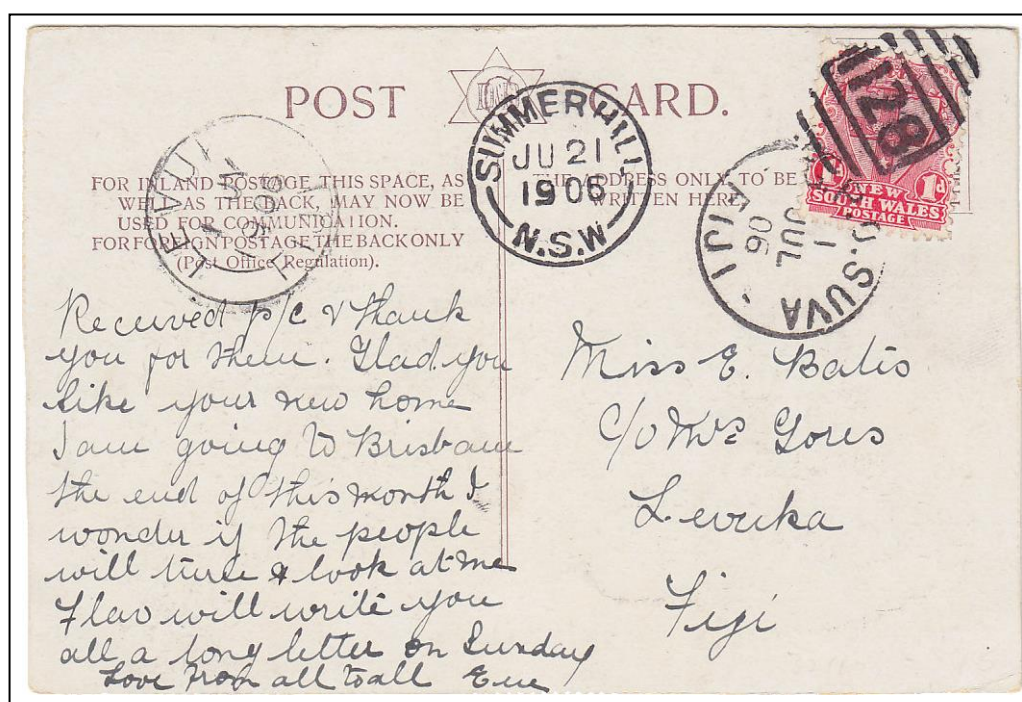 POST CARD.
FOR INLAND POSTAGE THIS SPACE, AS
WELL AS THE BACK, MAY NOW BE
USED FOR COMMUNICATION.
FOR FOREIGN POSTAGE THE BACK ONLY
(Post Office Regulation).
THE ADDRESS ONLY TO BE
WRITTEN HERE
SUMMER HILL
JU 21
1906
N.S.W
128
1d NEW 1d
SOUTH WALES
POSTAGE
G.P.O. SUVA · FIJI
1
JUL
06
LEVUKA
Received p/c & thank
you for them. Glad you
like your new home
I am going to Brisbane
the end of this month I
wonder if the people
will turn & look at me
Flav will write you
all a long letter on Sunday
Love from all to all Eve
Miss E. Batis
C/o Mrs Gores
Levuka
Figi